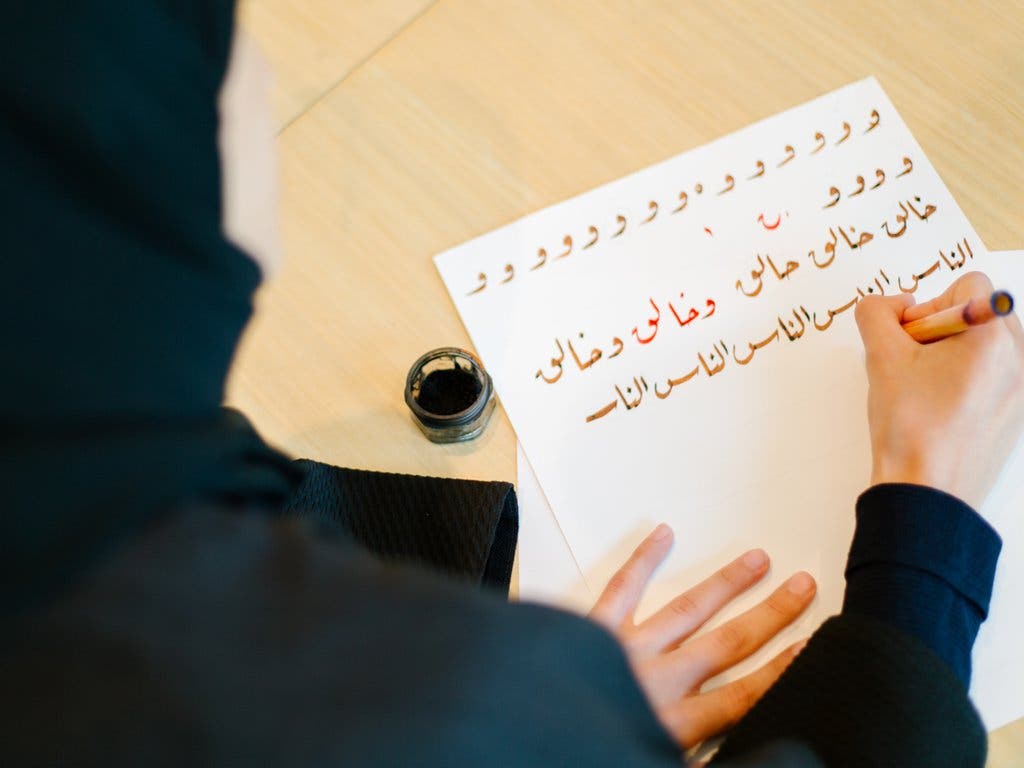 و و و و و و و و و و و و و و
و و و و
خالق خالق خالق وخالق وخالق
الناس الناس الناس الناس الناس